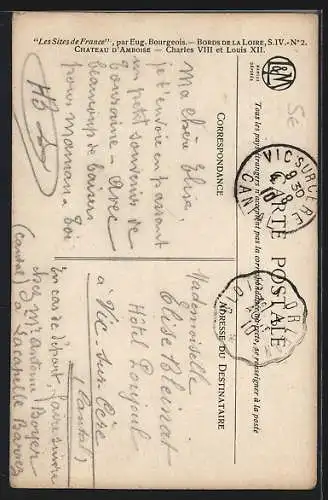 "Les Sites de France", par Eug. Bourgeois. — BORDS DE LA LOIRE, S.IV.-N°2.
CHATEAU D'AMBOISE — Charles VIII et Louis XII.
CARTE POSTALE
Tous les pays étrangers n'acceptent pas la correspondance au recto, se renseigner à la poste
CORRESPONDANCE
ADRESSE DU DESTINATAIRE
Ma chère Elise,
je t'envoie en passant
un petit souvenir de
Touraine - Avec
beaucoup de baisers
pour maman & toi
HB
Mademoiselle
Elise Bleinat
Hôtel
à Vic-sur-Cère
(Cantal)
En cas de départ, faire suivre
chez Mr Antoine Boyer
à Lacapelle Barrès
(Cantal)
VIC SUR CERE
9 30
CANTAL